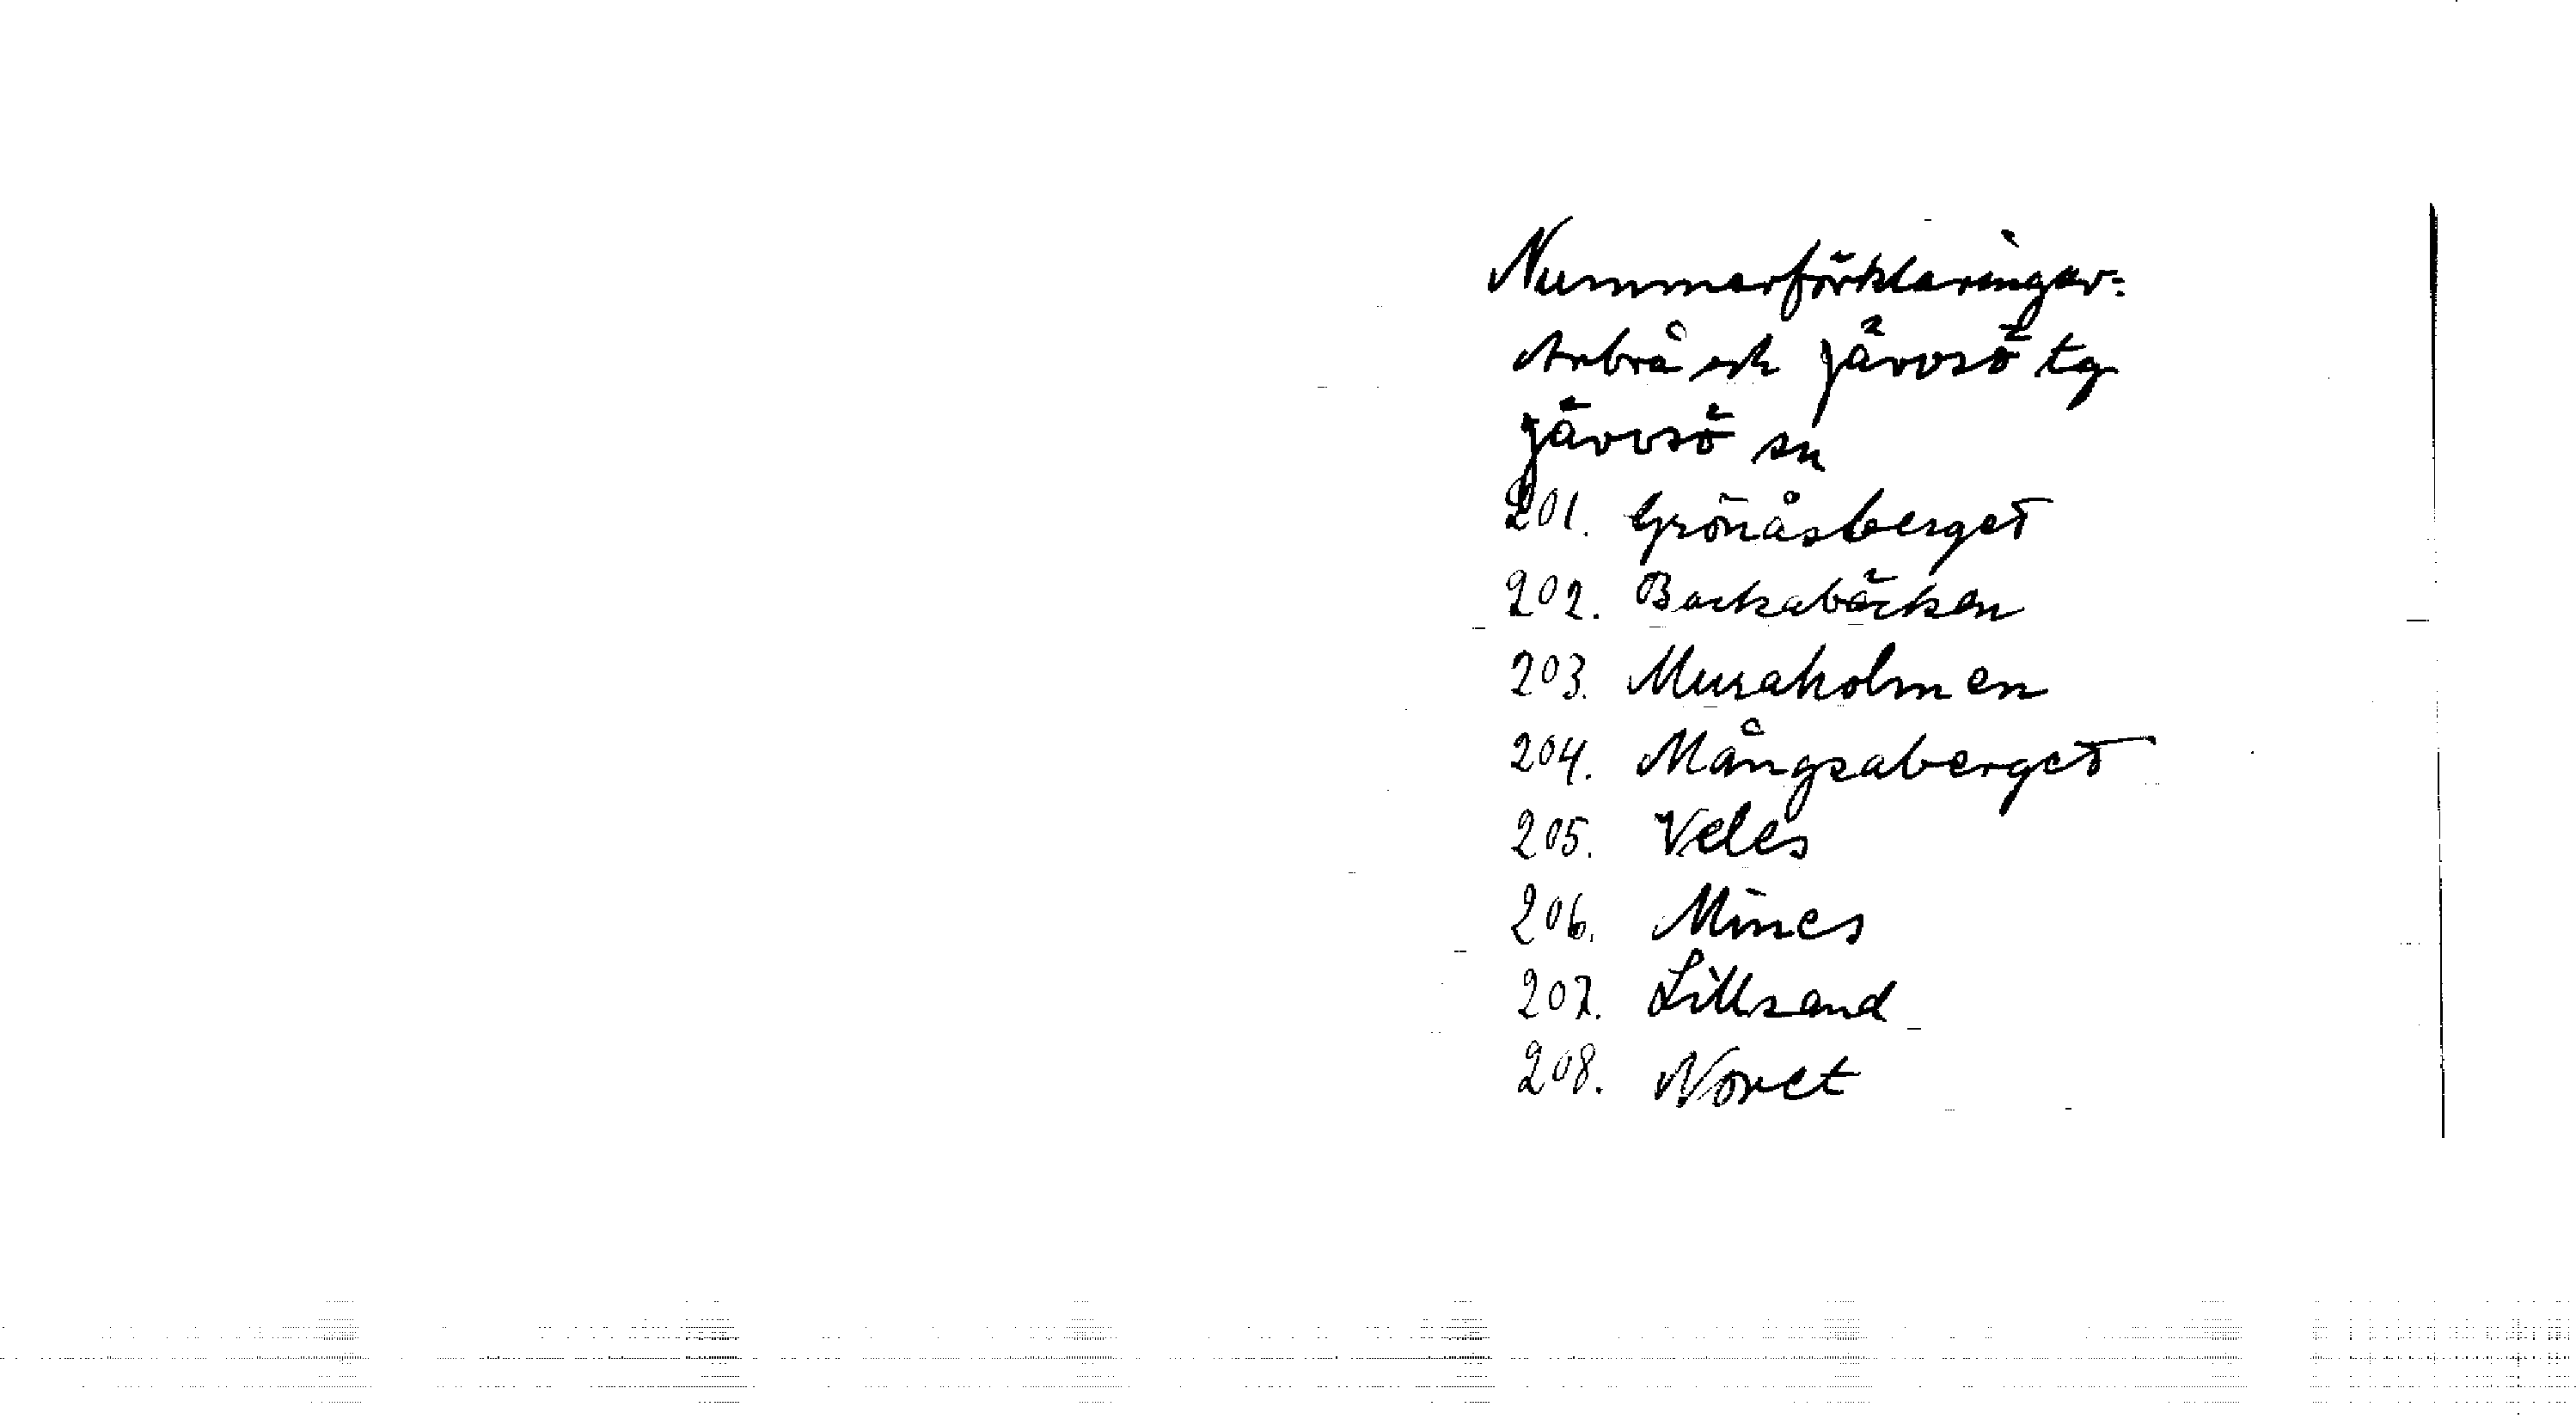 Nummerförklaringar:
Arbrå och Järvsö tg
Järvsö sn
201. Grönåsberget
202. Backabäcken
203. Muraholmen
204. Mångsaberget
205. Veles
206. Mines
207. Lillsand
208. Noret